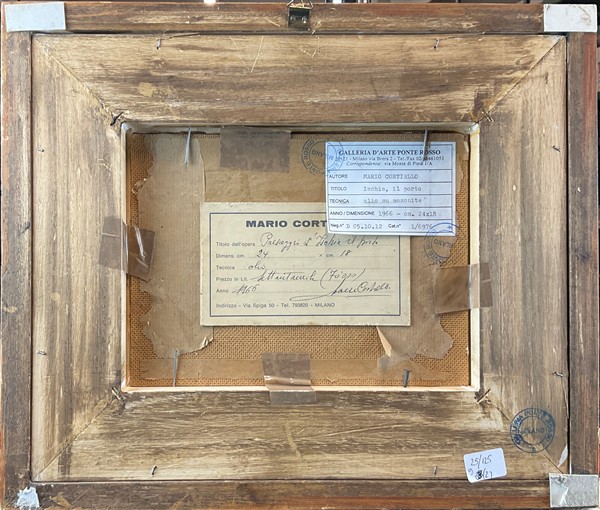 GALLERIA D'ARTE PONTE ROSSO
Milano via Brera 2 - Tel./Fax 02/86461053
Corrispondenza: via Monte di Pietà 1/A
AUTORE MARIO CORTIELLO
TITOLO Ischia, il porto
TECNICA olio su masonite
ANNO/DIMENSIONE 1966 - cm. 24x18
Neg.n° D 05.10.12 Cat.n° 1/6976
MARIO CORT
Titolo dell'opera Paesaggio d'Ischia il porto
Dimens. cm. 24 x cm. 18
Tecnica olio
Prezzo in Lit. settantamila (70.000)
Anno 1966 Mario Cortiello
Indirizzo - Via Spiga 50 - Tel. 793820 - MILANO
GALLERIA PONTE ROSSO
MILANO
25/125